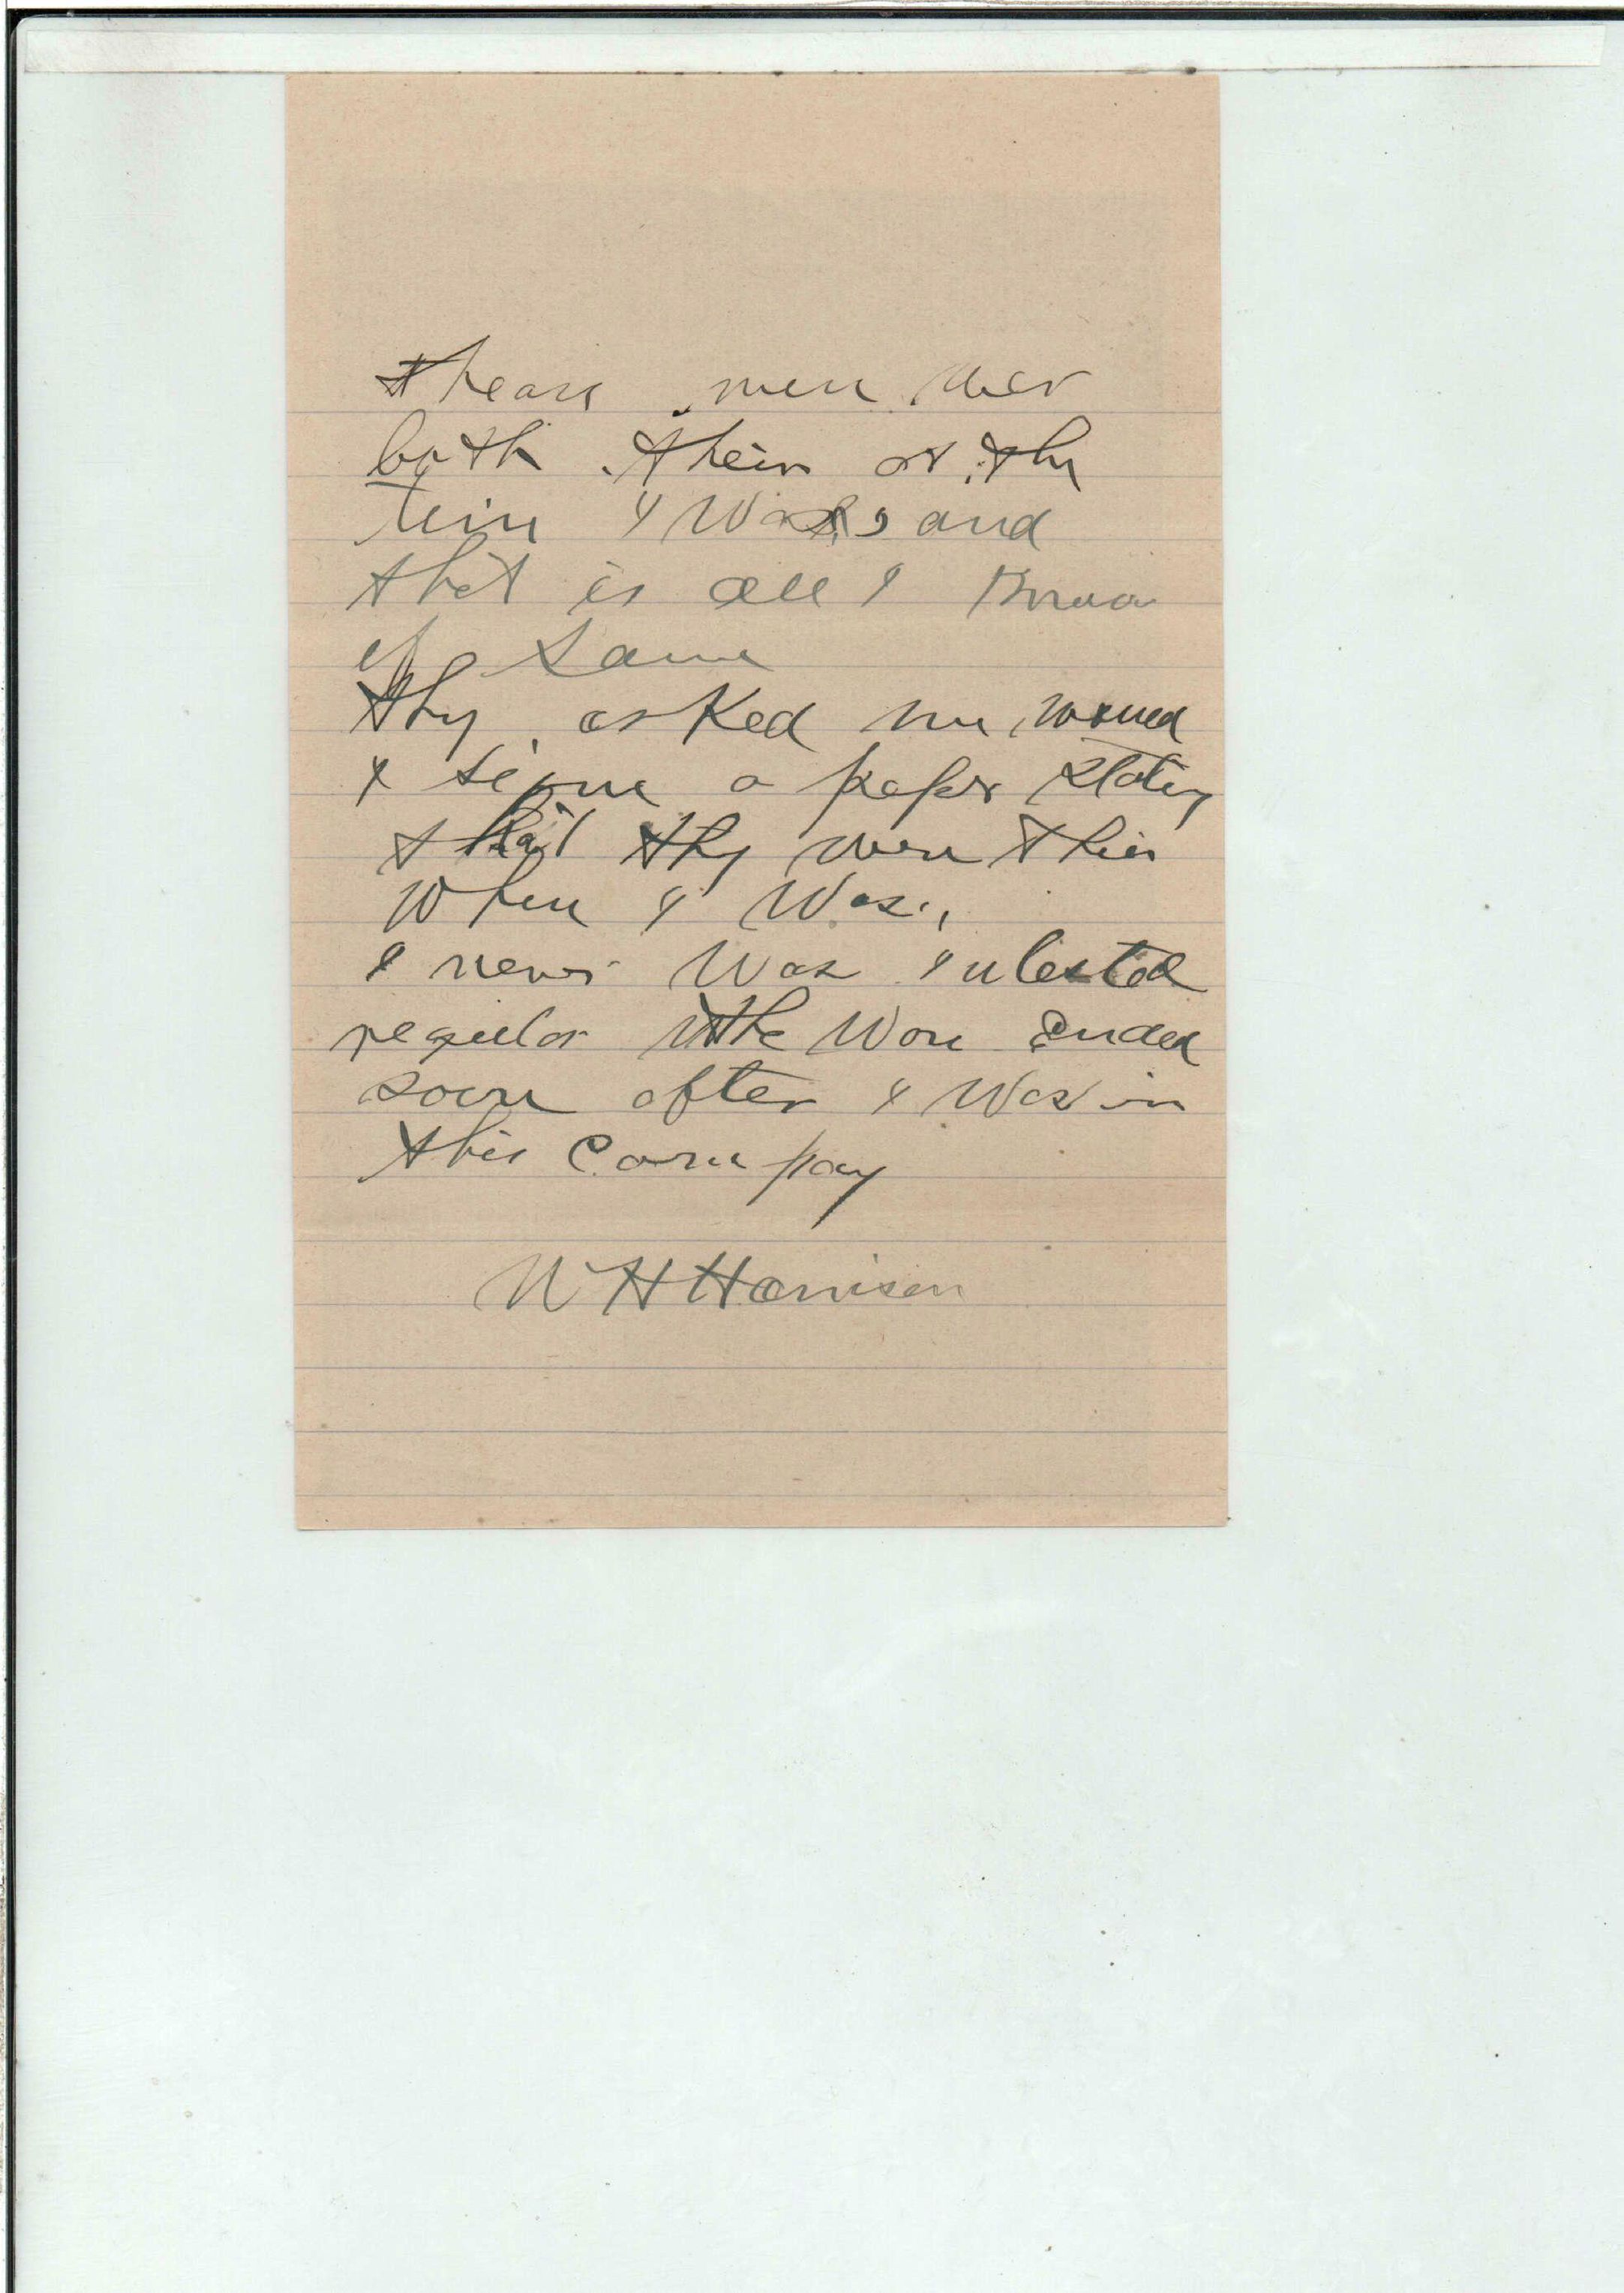 thease men wer
both their at the
time I Was, and
that is all I Know
of Same
they asked me would
I signe a paper stating
that they were thier
When I Was.,
I never Was Inlested
regular the Wore Ended
soon after I Was in
this Company
W H Harrison